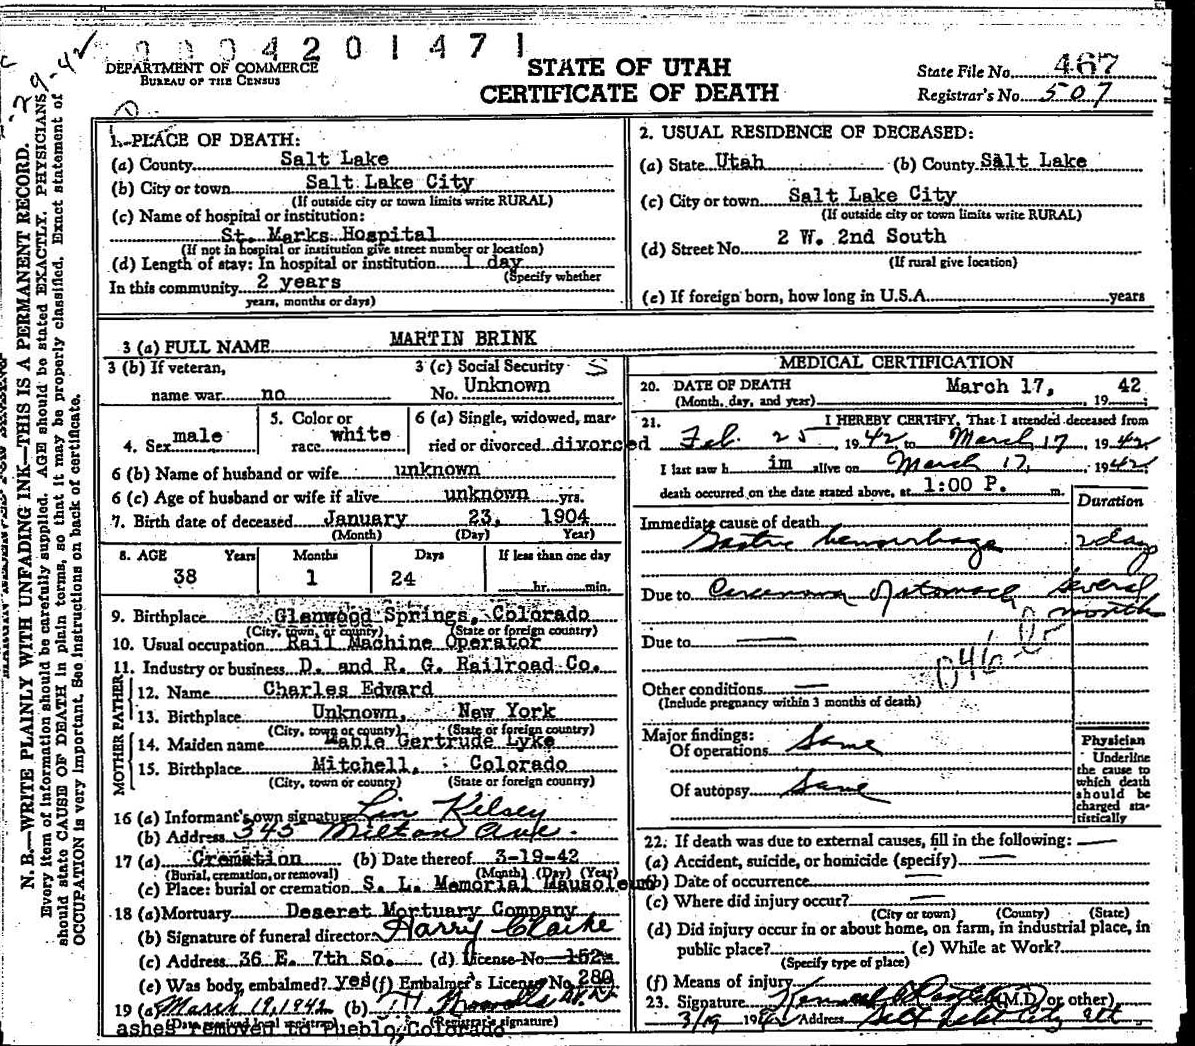 0004201471
DEPARTMENT OF COMMERCE
BUREAU OF THE CENSUS
STATE OF UTAH
CERTIFICATE OF DEATH
State File No. 467
Registrar's No. 507
N. B.—WRITE PLAINLY WITH UNFADING INK—THIS IS A PERMANENT RECORD.
Every item of information should be carefully supplied. AGE should be stated EXACTLY. PHYSICIANS
should state CAUSE OF DEATH in plain terms, so that it may be properly classified. Exact statement of
OCCUPATION is very important. See instructions on back of certificate.
1. PLACE OF DEATH:
(a) County Salt Lake
(b) City or town Salt Lake City
(If outside city or town limits write RURAL)
(c) Name of hospital or institution:
St. Marks Hospital
(If not in hospital or institution give street number or location)
(d) Length of stay: In hospital or institution 1 day
(Specify whether
In this community 2 years
years, months or days)
2. USUAL RESIDENCE OF DECEASED:
(a) State Utah (b) County Salt Lake
(c) City or town Salt Lake City
(If outside city or town limits write RURAL)
(d) Street No. 2 W. 2nd South
(If rural give location)
(e) If foreign born, how long in U.S.A. years
3 (a) FULL NAME MARTIN BRINK
3 (b) If veteran,
name war no
3 (c) Social Security S
No. Unknown
4. Sex male
5. Color or
race white
6 (a) Single, widowed, mar-
ried or divorced divorced
6 (b) Name of husband or wife unknown
6 (c) Age of husband or wife if alive unknown yrs.
7. Birth date of deceased January 23, 1904
(Month) (Day) Year)
8. AGE Years Months Days If less than one day
38 1 24 hr. min.
9. Birthplace Glenwood Springs, Colorado
(City, town, or county) (State or foreign country)
10. Usual occupation Rail Machine Operator
11. Industry or business D. and R. G. Railroad Co.
FATHER
12. Name Charles Edward
13. Birthplace Unknown, New York
(City, town or county) (State or foreign country)
MOTHER
14. Maiden name Mable Gertrude Lyke
15. Birthplace Mitchell, Colorado
(City, town or county) (State or foreign country)
16 (a) Informant's own signature Lin Kelsey
(b) Address 345 Milton Ave.
17 (a) Cremation (b) Date thereof 3-19-42
(Burial, cremation, or removal) (Month) (Day) (Year)
(c) Place: burial or cremation S. L. Memorial Mausoleum
18 (a) Mortuary Deseret Mortuary Company
(b) Signature of funeral director Harry Clarke
(c) Address 36 E. 7th So. (d) License No. 152
(e) Was body embalmed? yes (f) Embalmer's License No. 280
19 (a) March 19, 1942 (b) T.H.
(Registrar's signature)
ashes removed to Pueblo, Colorado
MEDICAL CERTIFICATION
20. DATE OF DEATH March 17, 42
(Month, day, and year) 19
21. I HEREBY CERTIFY, That I attended deceased from
Feb. 25, 1942 to March 17, 1942
I last saw h im alive on March 17, 1942
death occurred on the date stated above, at 1:00 P. m.
Duration
Immediate cause of death
Gastric hemorrhage 2 days
Due to Carcinoma of stomach several
months
Due to
046
Other conditions
(Include pregnancy within 3 months of death)
Major findings:
Of operations Same
Of autopsy Same
Physician
Underline
the cause to
which death
should be
charged sta-
tistically
22. If death was due to external causes, fill in the following:
(a) Accident, suicide, or homicide (specify)
(b) Date of occurrence
(c) Where did injury occur?
(City or town) (County) (State)
(d) Did injury occur in or about home, on farm, in industrial place, in
public place? (e) While at Work?
(Specify type of place)
(f) Means of injury
23. Signature (M.D. or other)
3/19 1942 Address Salt Lake City Ut